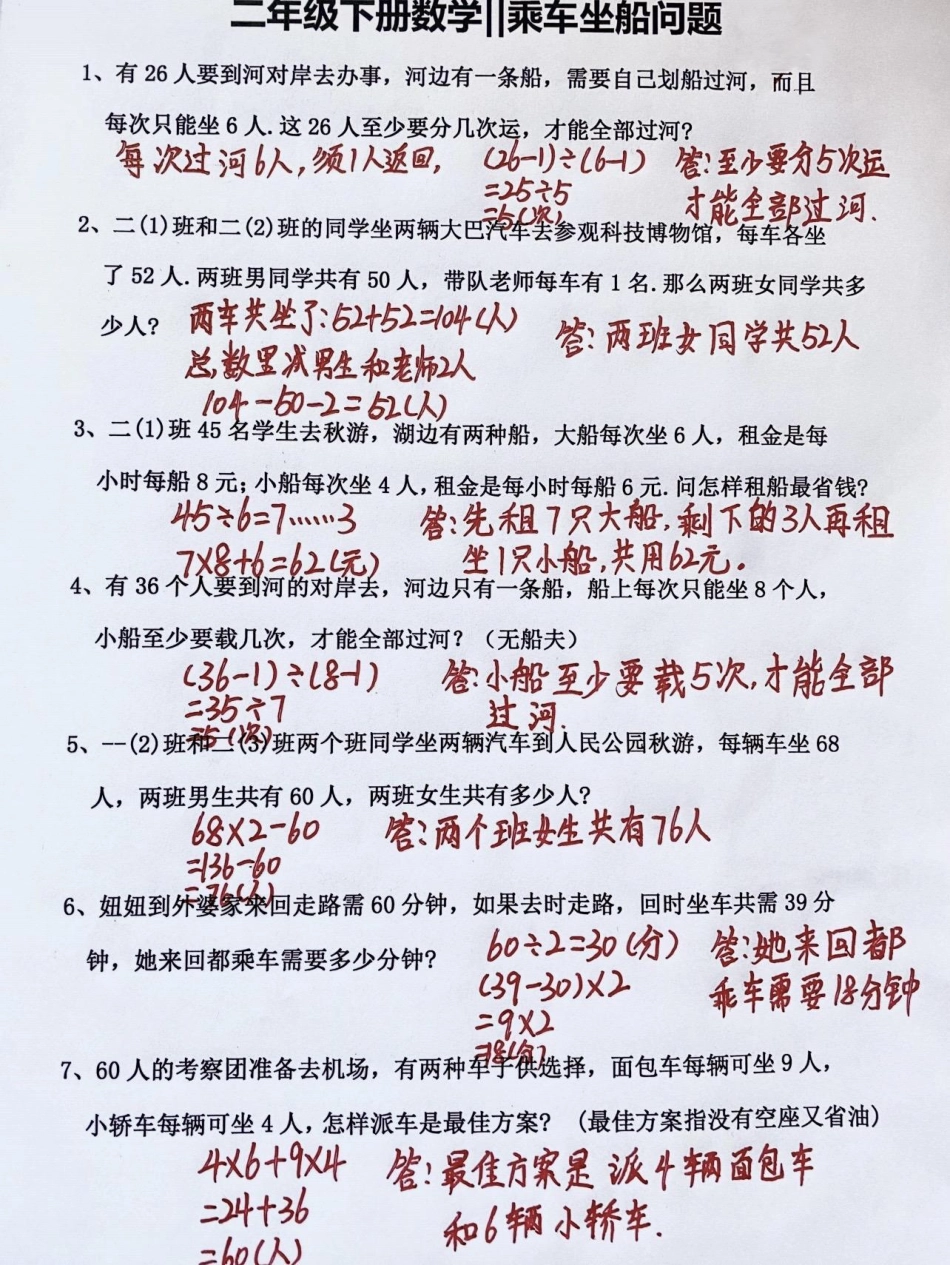 二年级下册数学||乘车坐船问题
1、有 26 人要到河对岸去办事，河边有一条船，需要自己划船过河，而且
每次只能坐 6 人.这 26 人至少要分几次运，才能全部过河？
每次过河6人,须1人返回, (26-1)÷(6-1) 答:至少要分5次运
=25÷5 才能全部过河.
=5(次)
2、二(1)班和二(2)班的同学坐两辆大巴汽车去参观科技博物馆，每车各坐
了 52 人.两班男同学共有 50 人，带队老师每车有 1 名.那么两班女同学共多
少人？ 两车共坐了:52+52=104(人) 答:两班女同学共52人
总数里减男生和老师2人
104-50-2=52(人)
3、二(1)班 45 名学生去秋游，湖边有两种船，大船每次坐 6 人，租金是每
小时每船 8 元；小船每次坐 4 人，租金是每小时每船 6 元.问怎样租船最省钱？
45÷6=7……3 答:先租7只大船,剩下的3人再租
7×8+6=62(元) 坐1只小船,共用62元。
4、有 36 个人要到河的对岸去，河边只有一条船，船上每次只能坐 8 个人，
小船至少要载几次，才能全部过河？（无船夫）
(36-1)÷(8-1) 答:小船至少要载5次,才能全部
=35÷7 过河.
=5(次)
5、--(2)班和二(3)班两个班同学坐两辆汽车到人民公园秋游，每辆车坐 68
人，两班男生共有 60 人，两班女生共有多少人？
68×2-60 答:两个班女生共有76人
=136-60
=76(人)
6、妞妞到外婆家来回走路需 60 分钟，如果去时走路，回时坐车共需 39 分
钟，她来回都乘车需要多少分钟？ 60÷2=30(分) 答:她来回都
(39-30)×2 乘车需要18分钟
=9×2
=18(分)
7、60 人的考察团准备去机场，有两种车子供选择，面包车每辆可坐 9 人，
小轿车每辆可坐 4 人，怎样派车是最佳方案？ (最佳方案指没有空座又省油)
4×6+9×4 答:最佳方案是派4辆面包车
=24+36 和6辆小轿车.
=60(人)